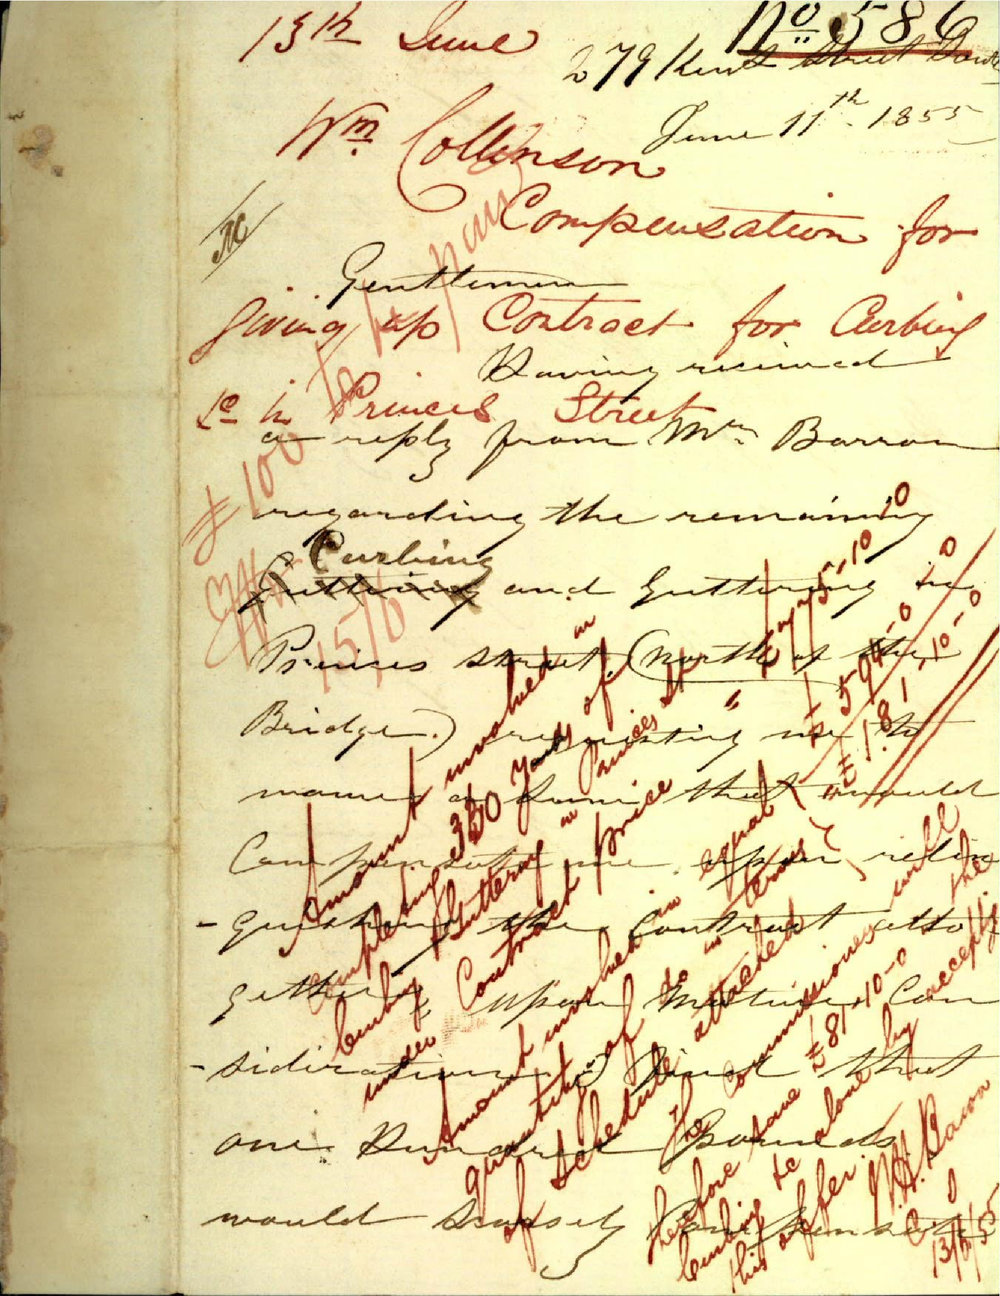 No 586
13th June
279 Kent Street South
June 11th 1855
Wm Collinson
Compensation for
giving up Contract for Curbing
&c in Princes Street
Gentlemen
Having received
a reply from Mr. Barron
regarding the remaining
Curbing
and Guttering in
Princes Street (North of the
Bridge) requesting me to
name a sum that would
Compensate me upon relin
-quishing the Contract alto
gether, upon Mature Con
-sideration I find that
one Hundred Pounds
would scarsely Compensate
£100 to be paid
15/6
Amount involved in
completing 350 yards of
curbing & guttering in Princes St
under Contract price " £775-10-0
Amount involved in equal
quantity of do in terms
of Schedule attached
£594-0-0
£181-10-0
The Commissioners will
therefore save £81-10-0 on the
curbing &c alone by accepting
this offer.
C S
13/6/55